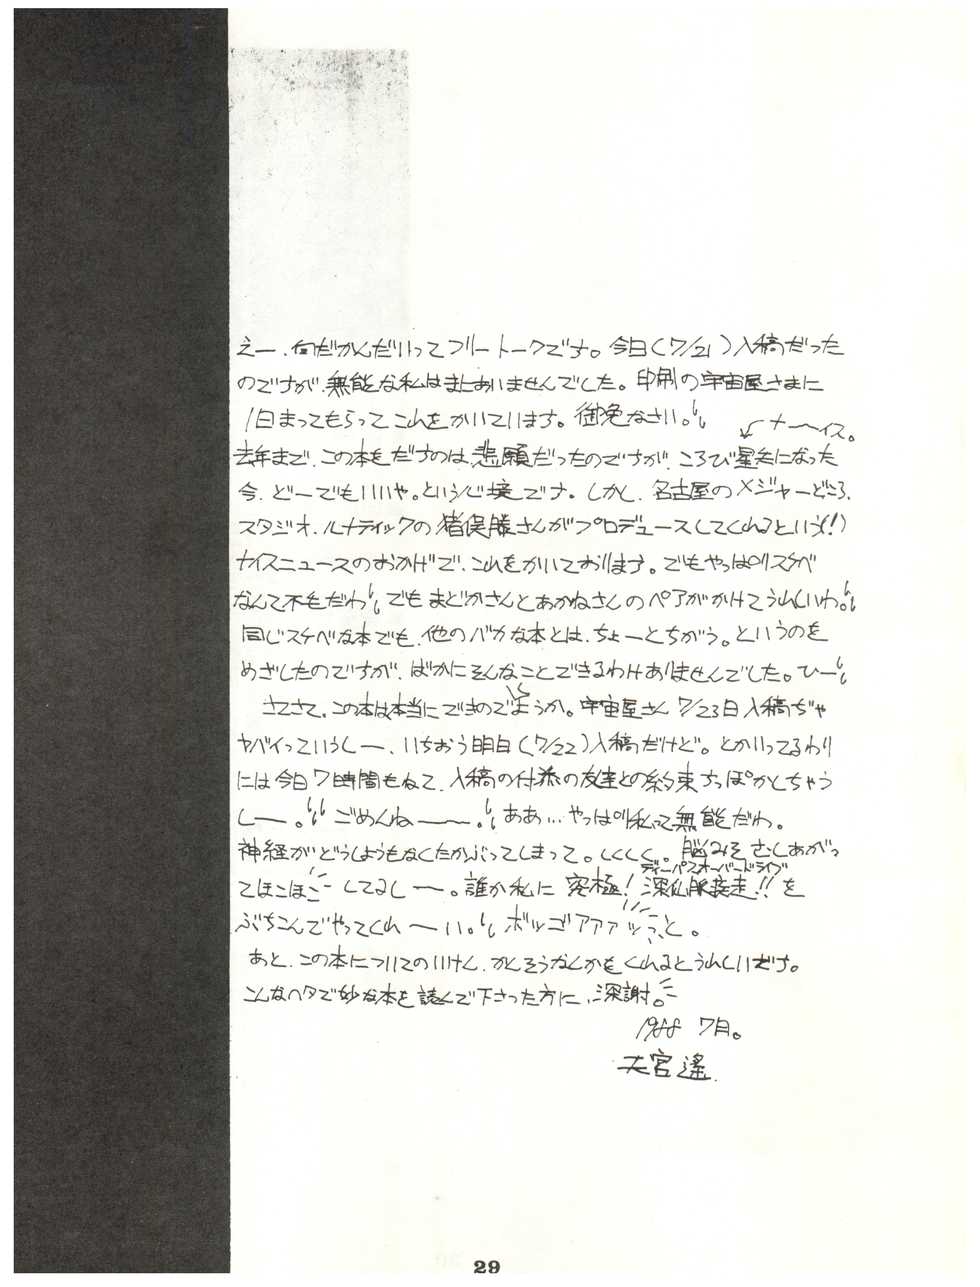 えー、何だかんだいってフリートークです。今日(7/21)入稿だった
のですが、無能な私はまにあいませんでした。印刷の宇宙屋さまに
1日まってもらってこれをかいています。御免なさい。
ナーイス。
去年まで、この本をだすのは、悲願だったのですが、ころび星矢になった
今、どーでもいいや。という心境です。しかし、名古屋のメジャーどころ、
スタジオ・ルナティックの猪俣勝さんがプロデュースしてくれるという(!)
ナイスニュースのおかげで、これをかいております。でもやっぱりスケベ
なんて不毛だわ でもまどかさんとあかねさんのペアがかけてうれしいわ。
同じスケベな本でも、他のバカな本とは、ちょーとちがう。というのを
めざしたのですが、ばかにそんなことできるわけありませんでした。ひー
さてさて、この本は本当にできのでしようか。宇宙屋さん7/23日入稿ぢゃ
ヤバイっていうしー、いちおう明日(7/22)入稿だけど。とかいってるわり
には今日7時間もねて、入稿の付添の友達との約束すっぽかしちゃう
しー。ごめんねー〜。ああ…やっぱり私って無能だわ。
神経がどうしようもなくたかぶってしまって。しくしく。脳みそさしあがっ
てほこほこしてるしー。誰か私に 究極!深仙脈疾走!!を
ディーパスオーバードライブ
ぶちこんでやってくれーい。ボッゴアァァッっと。
あと、この本についてのいけん、かんそうなんかをくれるとうれしいだす。
こんなヘタで妙な本を読んで下さった方に、深謝。
1988 7月。
大宮遥
29